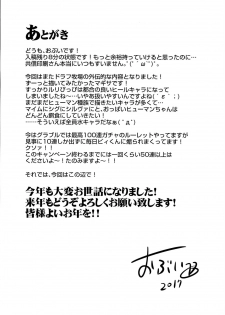 あとがき
どうも、おぶいです！
入稿残り8分の状態です！もっと余裕持っていけると思ったのに…
共信印刷さん本当にいつもすいません。゜(゜´ω｀゜)゜。
今回はまたドラフ牧場の外伝的な内容となりました！
ずーっと描いてみたかったマギサです！
すっかりルリぴっぴは都合の良いヒールキャラになって
しまいましたね～…いやあ扱いやすいんですよね
まだまだヒューマン種族で描きたいキャラが多くて、
マイムにシグにシルヴァにと、おっぱいヒューマンちゃんは
どんどん餌食にしていきたい！
…そういえば全員水キャラだなぁ
今回はグラブルでは最高100連ガチャのルーレットやってますが
見事に10連しか出ずに毎日ビィくんに煽られまくってます！
クソァ！！
このキャンペーン終わるまでには一回くらい50連以上は
くださいよ～！たのみますよ～！！
それでは、今回はこの辺で！
今年も大変お世話になりました！
来年もどうぞよろしくお願い致します！
皆様よいお年を！！
おぶい
2017